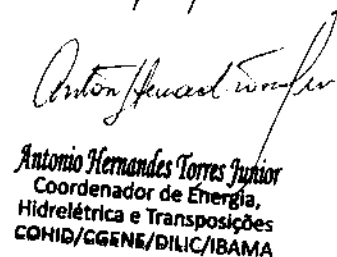 Antonio Hernandes Torres Junior
Coordenador de Energia,
Hidrelétrica e Transposições
COHID/CGENE/DILIC/IBAMA